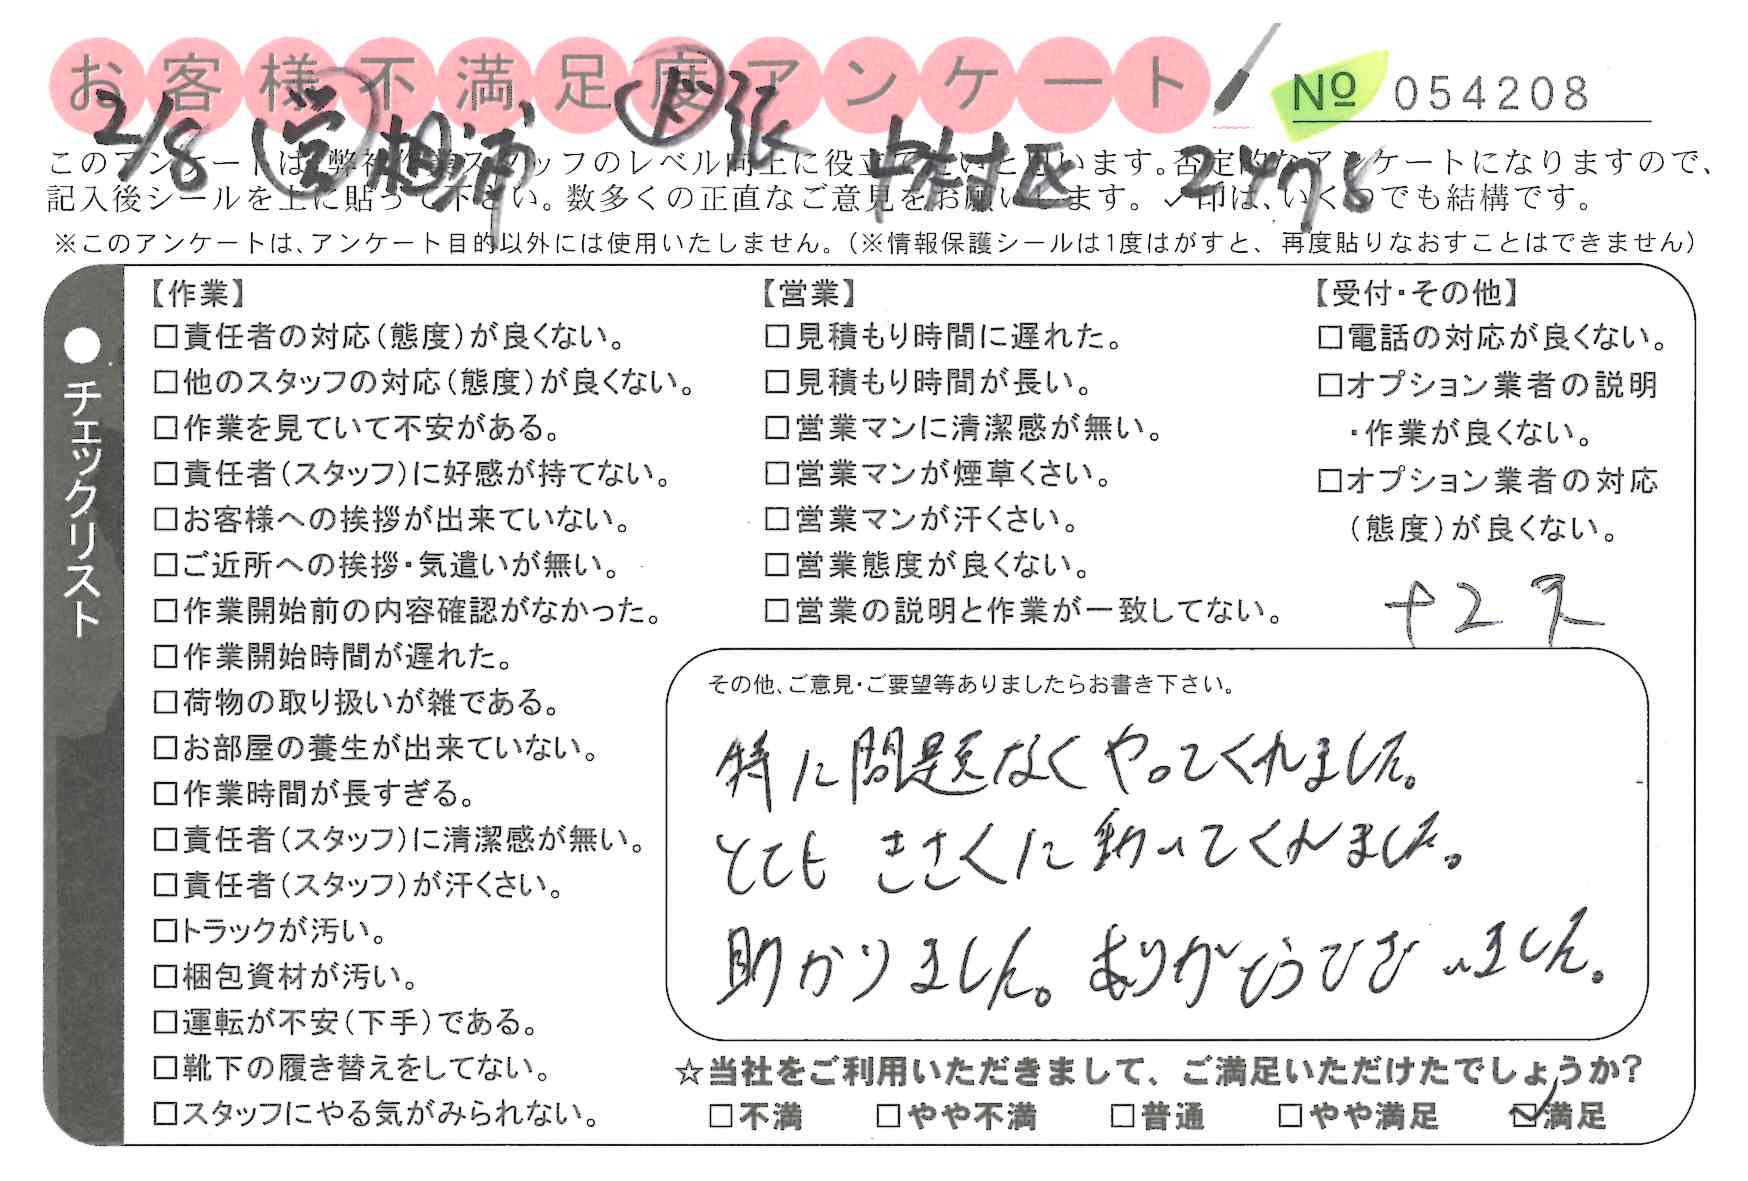 お客様不満足度アンケート
№ 054208
2/8 営 相浦 ド 張 中村区 2478
このアンケートは、弊社作業スタッフのレベル向上に役立てたいと思います。否定的なアンケートになりますので、
記入後シールを上に貼って下さい。数多くの正直なご意見をお願いします。✓印は、いくつでも結構です。
※このアンケートは、アンケート目的以外には使用いたしません。（※情報保護シールは1度はがすと、再度貼りなおすことはできません）
●チェックリスト
【作業】
□責任者の対応（態度）が良くない。
□他のスタッフの対応（態度）が良くない。
□作業を見ていて不安がある。
□責任者（スタッフ）に好感が持てない。
□お客様への挨拶が出来ていない。
□ご近所への挨拶・気遣いが無い。
□作業開始前の内容確認がなかった。
□作業開始時間が遅れた。
□荷物の取り扱いが雑である。
□お部屋の養生が出来ていない。
□作業時間が長すぎる。
□責任者（スタッフ）に清潔感が無い。
□責任者（スタッフ）が汗くさい。
□トラックが汚い。
□梱包資材が汚い。
□運転が不安（下手）である。
□靴下の履き替えをしてない。
□スタッフにやる気がみられない。
【営業】
□見積もり時間に遅れた。
□見積もり時間が長い。
□営業マンに清潔感が無い。
□営業マンが煙草くさい。
□営業マンが汗くさい。
□営業態度が良くない。
□営業の説明と作業が一致してない。
【受付・その他】
□電話の対応が良くない。
□オプション業者の説明
・作業が良くない。
□オプション業者の対応
（態度）が良くない。
+2
その他、ご意見・ご要望等ありましたらお書き下さい。
特に問題なくやってくれました。
とても きさくに動いてくれました。
助かりました。ありがとうございました。
☆当社をご利用いただきまして、ご満足いただけたでしょうか？
□不満 □やや不満 □普通 □やや満足 ☑満足